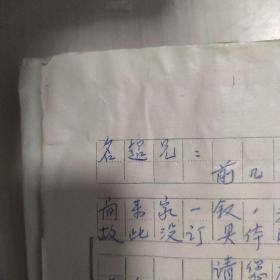 名超兄：
前几
尚来家一叙，
故此没订具体
请您